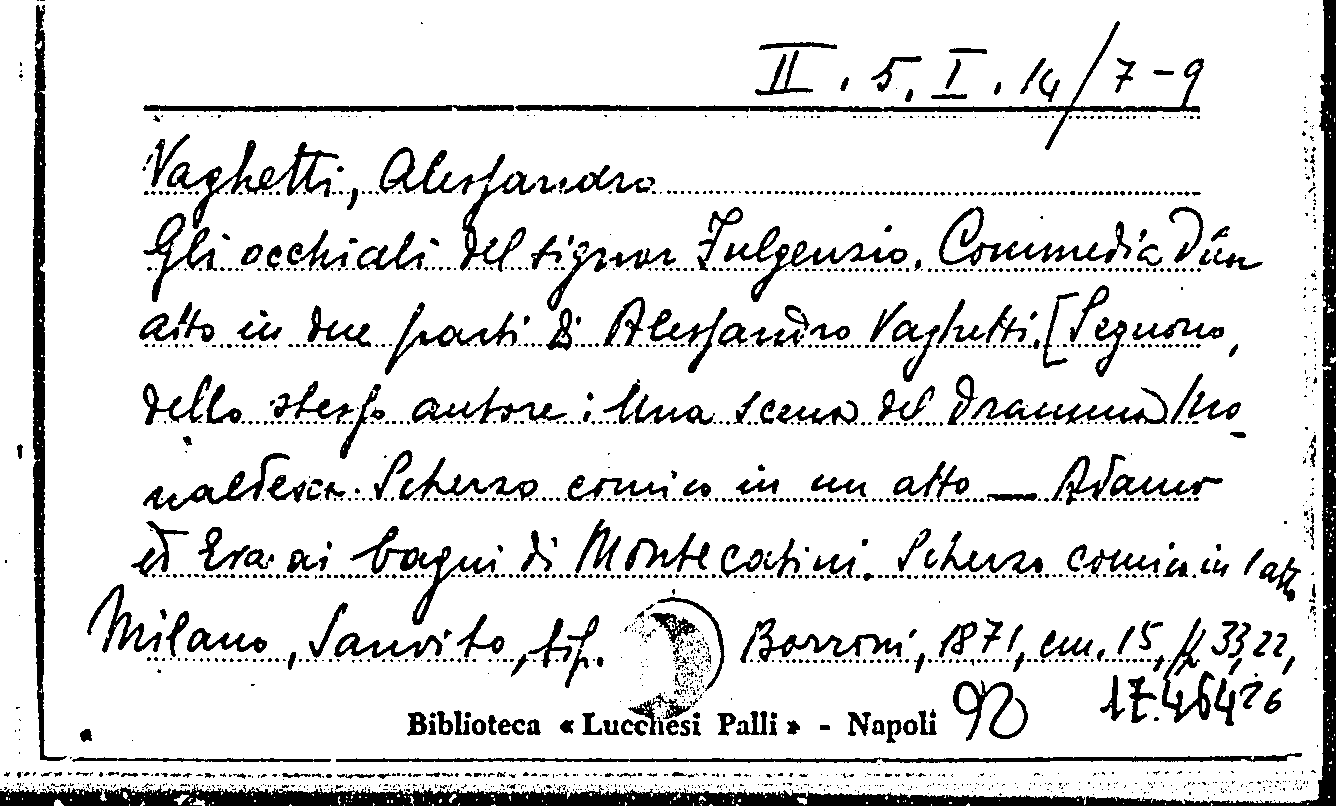 II. 5. I. 14/7-9
Vaghetti, Alessandro
Gli occhiali del signor Fulgenzio. Commedia d'un
atto in due parti di Alessandro Vaghetti. [Seguono,
dello stesso autore: Una scena del dramma Mo
naldesca. Scherzo comico in un atto — Adamo
ed Eva ai bagni di Montecatini. Scherzo comico in 1 atto
Milano, Sanvito, tip. Borroni, 1871, cm. 15, p. 33, 22,
26
Biblioteca « Lucchesi Palli » - Napoli